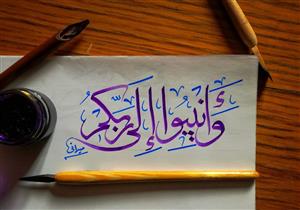 وَأَنِيبُوا إِلَى رَبِّكُمْ